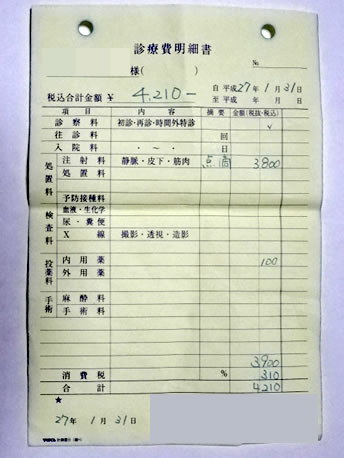 診療費明細書
様( ) No.
税込合計金額 ¥ 4,210- 自 平成27年1月31日
至 平成 年 月 日
項目 内容 摘要 金額(税抜・税込)
診察料 初診・再診・時間外特診 ✓
往診料 回
入院料 ・ 〜 ・ 日
処置料 注射料 静脈・皮下・筋肉 点滴 3,800
処置料
予防接種料
検査料 血液・生化学
尿・糞便
X線 撮影・透視・造影
投薬料 内用薬 100
外用薬
手術 麻酔料
手術料
3,900
消費税 % 310
合計 4210
★
27年 1月 31日